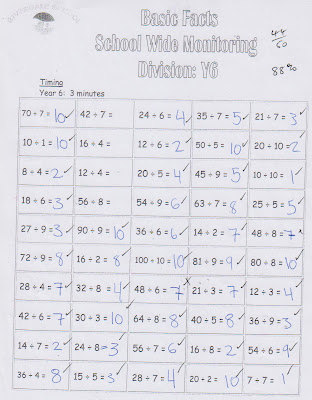 Basic Facts
School Wide Monitoring
Division: Y6
44/50
88%
Timing
Year 6: 3 minutes
70 ÷ 7 = 10 ✓ 42 ÷ 7 = 24 ÷ 6 = 4 ✓ 35 ÷ 7 = 5 ✓ 21 ÷ 7 = 3 ✓
10 ÷ 1 = 10 ✓ 16 ÷ 4 = 12 ÷ 6 = 2 ✓ 50 ÷ 5 = 10 ✓ 20 ÷ 10 = 2 ✓
8 ÷ 4 = 2 ✓ 12 ÷ 4 = 20 ÷ 5 = 4 ✓ 45 ÷ 9 = 5 ✓ 10 ÷ 10 = 1 ✓
18 ÷ 6 = 3 ✓ 56 ÷ 8 = 54 ÷ 9 = 6 ✓ 63 ÷ 7 = 8 ✓ 25 ÷ 5 = 5 ✓
27 ÷ 9 = 3 ✓ 90 ÷ 9 = 10 ✓ 36 ÷ 6 = 6 ✓ 14 ÷ 2 = 7 ✓ 48 ÷ 8 = 7 ✓
72 ÷ 9 = 8 ✓ 16 ÷ 2 = 8 ✓ 100 ÷ 10 = 10 ✓ 81 ÷ 9 = 9 ✓ 80 ÷ 8 = 10 ✓
28 ÷ 4 = 7 ✓ 32 ÷ 8 = 4 ✓ 48 ÷ 6 = 7 x 21 ÷ 3 = 7 ✓ 12 ÷ 3 = 4 ✓
42 ÷ 6 = 7 ✓ 30 ÷ 3 = 10 ✓ 64 ÷ 8 = 8 ✓ 40 ÷ 5 = 8 ✓ 36 ÷ 9 = 3 ✓
14 ÷ 7 = 2 ✓ 24 ÷ 8 = 3 ✓ 56 ÷ 7 = 6 ✓ 16 ÷ 8 = 2 ✓ 54 ÷ 6 = 9 ✓
36 ÷ 4 = 8 ✓ 15 ÷ 5 = 3 ✓ 28 ÷ 7 = 4 ✓ 20 ÷ 2 = 10 ✓ 7 ÷ 7 = 1 ✓